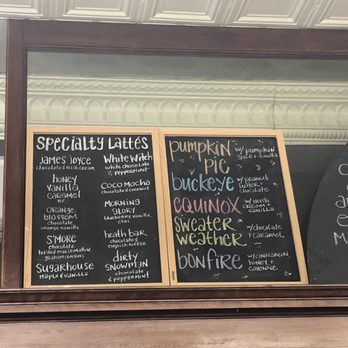 SPECIALTY LATTÉS
JAMES JOYCE
chocolate & irish cream
HONEY
VANILLA
CARAMEL
ORANGE
BLOSSOM
chocolate,
orange & vanilla
S'MORE
chocolate,
toasted marshmallow
SUGARHOUSE
MAPLE & VANILLA
WHITE WITCH
white chocolate
& peppermint
COCO MOCHA
chocolate & coconut
MORNING
GLORY
blueberry, vanilla,
chai
heath bar
chocolate &
english toffee
DIRTY
SNOWMAN
chocolate
& peppermint
PUMPKIN
PIE
w/ pumpkin
spice + vanilla
BUCKEYE
w/ peanut
butter +
chocolate
EQUINOX
w/ irish
cream +
vanilla
SWEATER
WEATHER
w/ chocolate
+ caramel
BONFIRE
w/ cinnamon,
honey +
cayenne